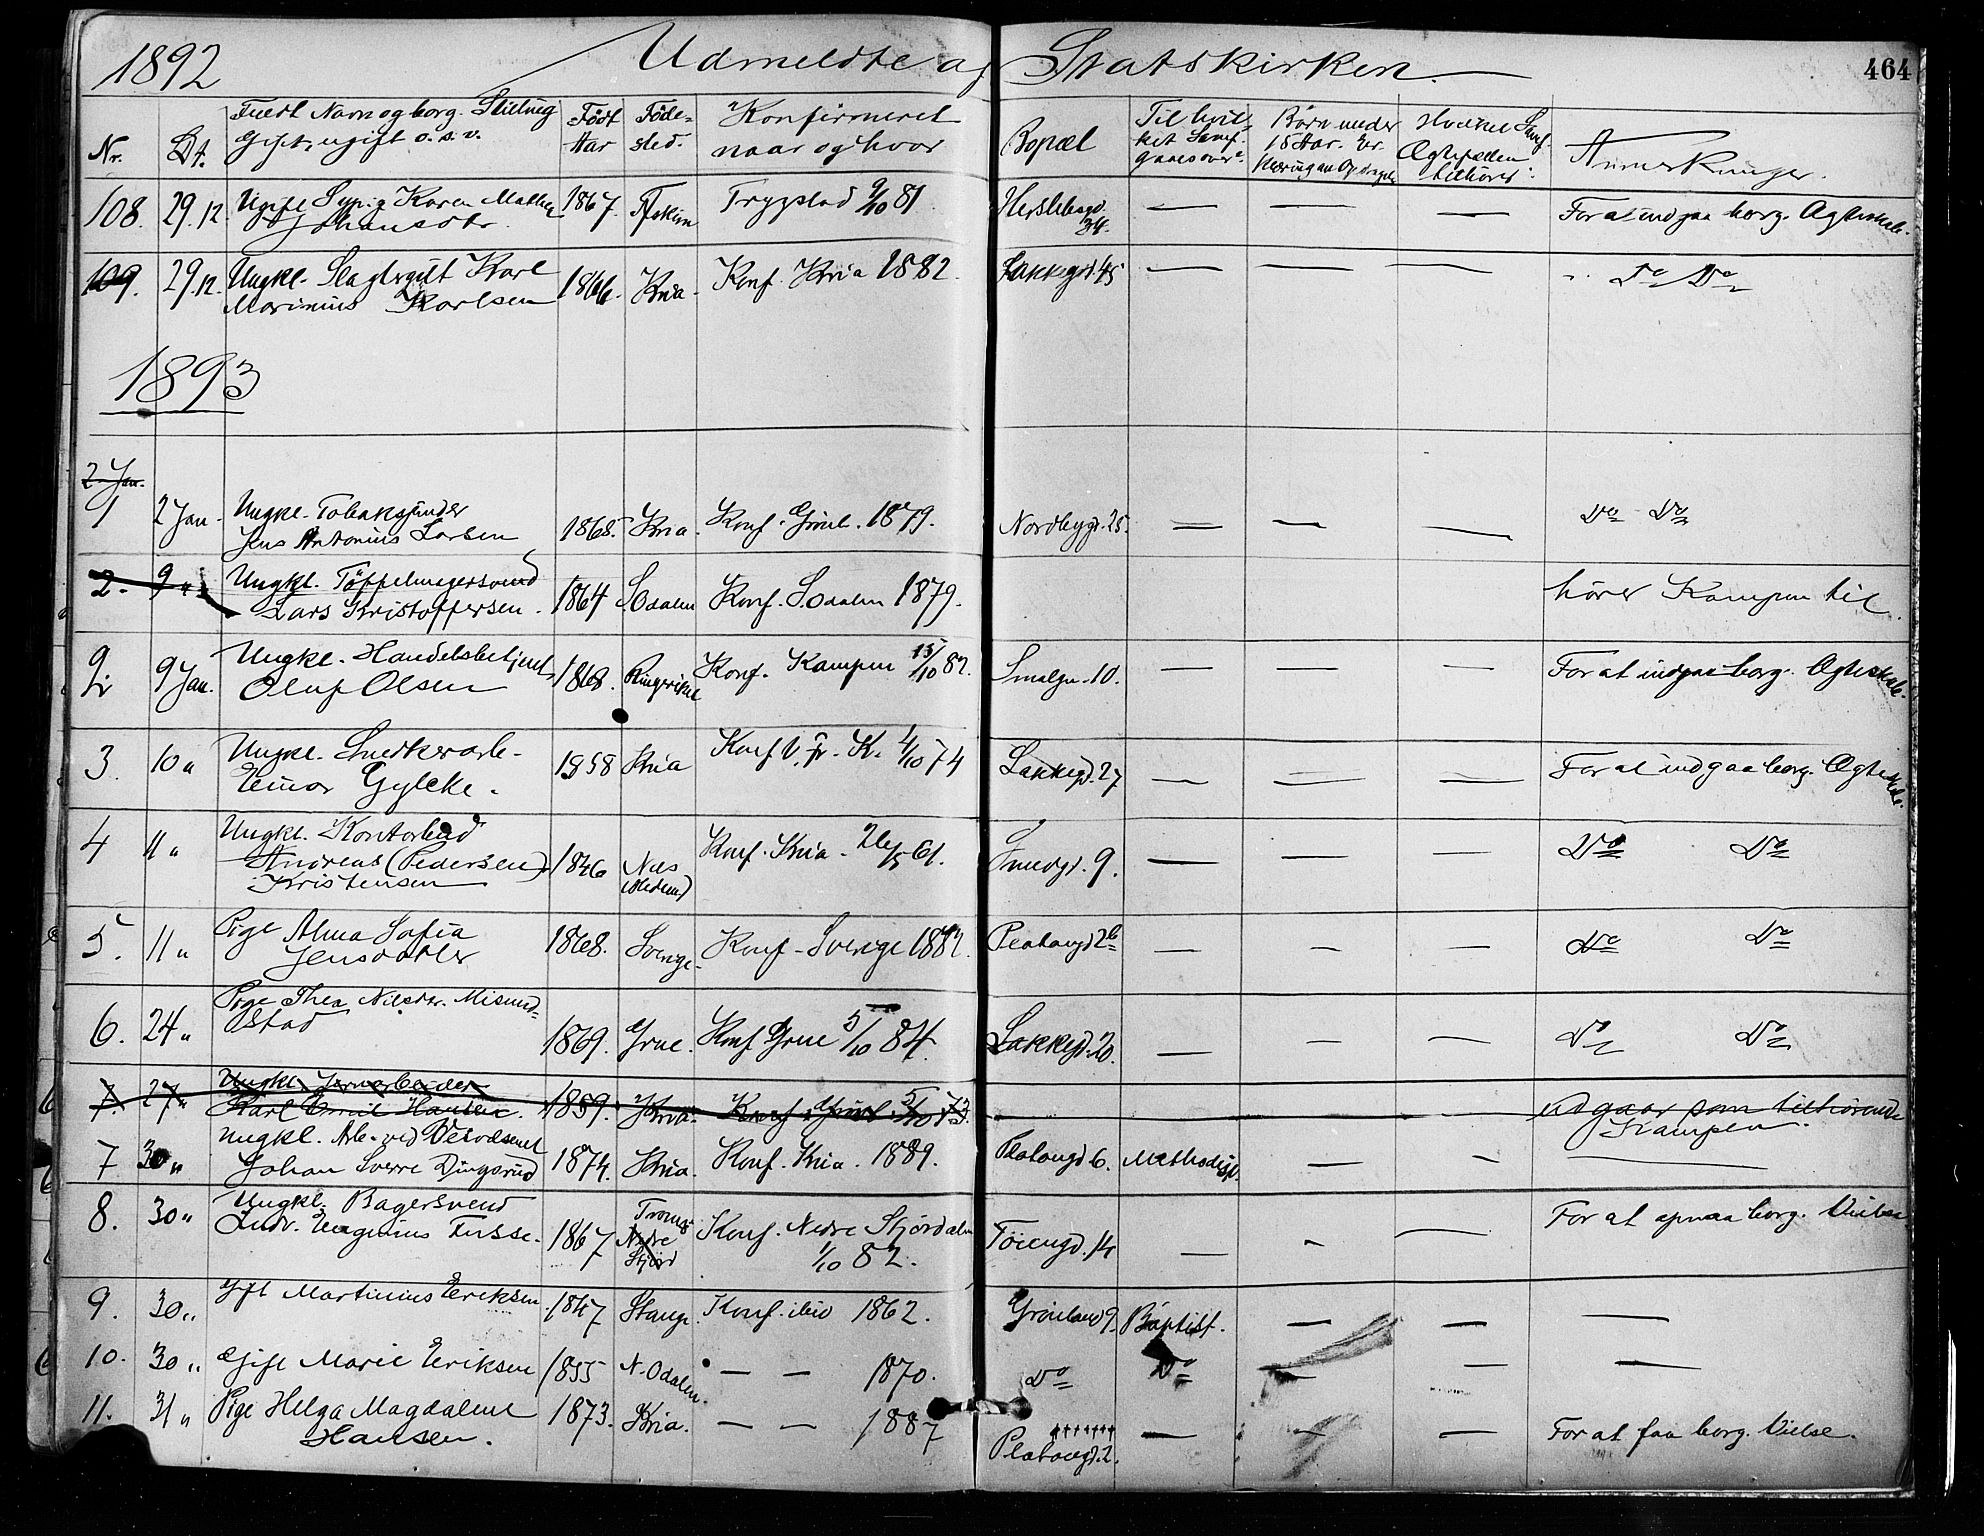 1892 Udmeldte af Statskirken. 464
Nr. Dt. Fuldt Navn og borg. Stilling Gift, ugift o.s.v. Født Aar Føde-sted. Konfirmeret naar og hvor Bopæl Til hvil-ket Samf. gaaes over? Børn under 15 Aar. Er Hvilket Samf. Ægtefællen tilhører Anmerkninger.
108. 29.12. Ugift Syp. Karen Mathea Johansdtr. 1867. Trygstad 9/10 81. Herslebsgd. 34. — — — For at indgaa borg. Ægteskab.
109. 29.12. Ungkl. Slagtergut Karl Marinius Karlsen 1866. Kria. Konf. Kria 1882. Lakkegd. 45 — — — Do Do
1893
2 Jan.
1 2 Jan. Ungkl. Tobaksspinder Jens Antonius Larsen 1865. Kria. Konf. Grønl. 1879. Nordbygd. 25. — — — Do Do
2. 9 " Ungkl. Tøffelmagersvend Lars Kristoffersen. 1864 S. Odalen Konf. S. Odalen 1879. hører Kampen til.
2. 9 Jan. Ungkl. Handelsbetjent Oluf Olsen 1868. Ringerike Konf. Kampen 15/10 82. Smalgn. 10. — — — For at indgaa borg. Ægteskab.
3. 10 " Ungkl. Snedkerarb. Einar Gylche. 1858 Kria Konf. V. Fr. K. 4/10 74 Lakkegd. 27 — — — For at indgaa borg. Ægteskab.
4 11 " Ungkl. Kontorbud Andreas (Pedersen) Kristensen 1846 Nes (Hedem) Konf. Kria. 26/5 61. Smedgd. 9. — — — Do Do
5. 11 " Pige Alma Sofia Jensdatter 1868. Sverige. Konf. Sverige 1882. Platougd 2b — — — Do Do
6. 24 " Pige Thea Nilsdtr. Misund-Østad 1869. Grue. Konf Grue 5/10 84. Lakkegd. 20. — — — Do Do
7. 27 " Ungkl. Jernarbeider Karl Emil Hansen. 1859. Kria. Konf. Grønl. 5/10 73. udgaar som tilhørende Kampen.
7 30 " Ungkl. Arb. ved Veivæsenet Johan Sverre Dingsrud 1874. Kria. Konf. Kria. 1889. Platougd 6. Methodist. — — —
8. 30 " Ungkl. Bagersvend Ludv. Eugenius Fusse. 1867 Tromsø Nedre Stjørd Konf. Nedre Stjørdalen 1/10 82. Tøiengd. 14 — — — For at opnaa borg. Vielse
9. 30 " Gift Martinius Eriksen. 1847 Stange. Konf. ibid 1862. Grønland 9. Baptist. — — —
10. 30 " Gift Marie Eriksen 1855 N. Odalen. — — 1870. Do Do — — —
11. 31 " Pige Helga Magdalene Hansen. 1873. Kria. — — 1887 Platougd. 2. — — — For at faa borg. Vielse.